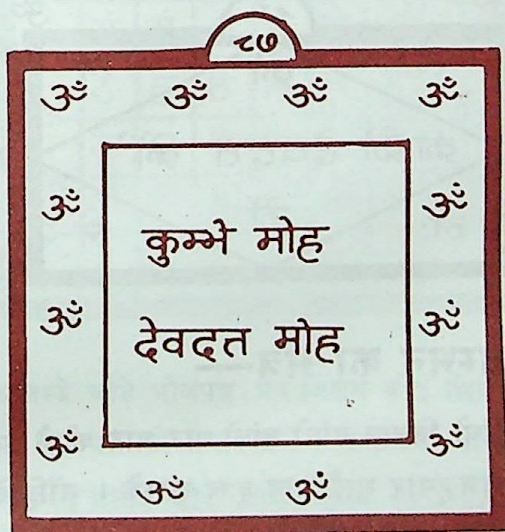 ८७
ॐ ॐ ॐ ॐ
ॐ ॐ
कुम्भे मोह
ॐ ॐ
देवदत्त मोह
ॐ ॐ
ॐ ॐ